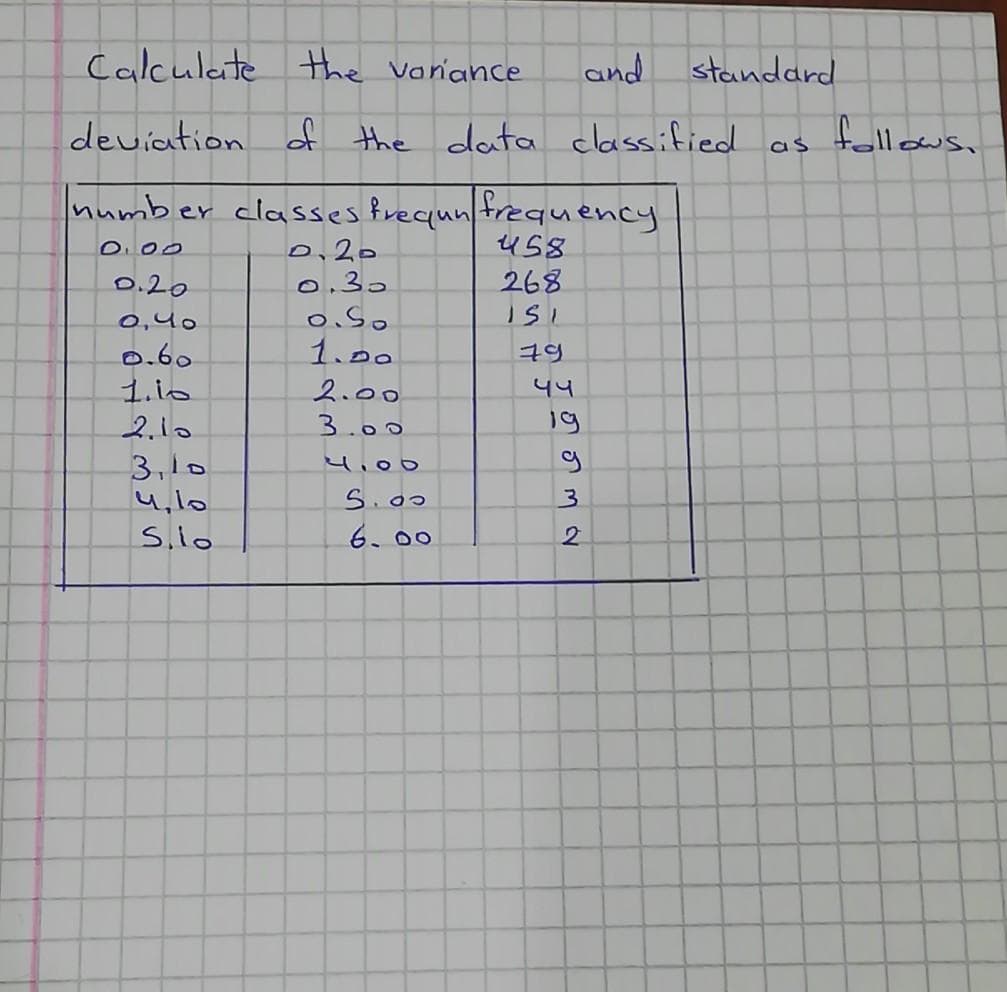 Calculate the variance and standard
deviation of the data classified as follows.
number classes frequn frequency
0.00 0.20 458
0.20 0.30 268
0.40 0.50 151
0.60 1.00 79
1.10 2.00 44
2.10 3.00 19
3.10 4.00 9
4.10 5.00 3
5.10 6.00 2